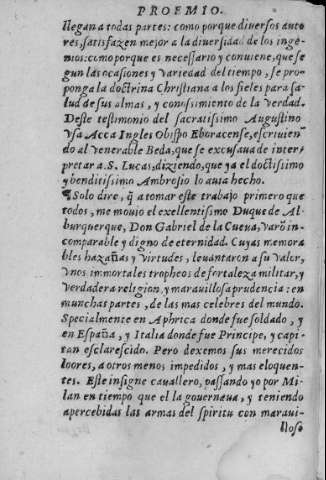 PROEMIO.
llegan a todas partes: como porque diuersos auto
res, satisfazen mejor a la diuersidad de los inge-
nios: como porque es necessario y conuiene, que se
gun las ocasiones y variedad del tiempo, se pro-
ponga la doctrina Christiana a los fieles para sa-
lud de sus almas, y conoscimiento de la verdad.
Deste testimonio del sacratissimo Augustino
vsa Acca Ingles Obispo Eboracense, escriuien̄
do al venerable Beda, que se excusaua de inter-
pretar a S. Lucas, diziendo, que ya el doctissimo
y benditissimo Ambrosio lo auia hecho.
¶Solo dire, q̃ a tomar este trabajo primero que
todos, me mouio el exellentissimo Duque de Al-
burquerque, Don Gabriel de la Cueua, varõ in-
comparable y digno de eternidad. Cuyas memora
bles hazañas y virtudes, leuantaron a su valor,
vnos immortales tropheos de fortaleza militar, y
verdadera religion, y marauillosa prudencia: en
munchas partes, de las mas celebres del mundo.
Specialmente en Aphrica donde fue soldado, y
en España, y Italia donde fue Principe, y capi-
tan esclarescido. Pero dexemos sus merecidos
loores, a otros menos impedidos, y mas eloquen-
tes. Este insigne cauallero, passando yo por Mi-
lan en tiempo que el la gouernaua, y teniendo
apercebidas las armas del spiritu con maraui-
lloso